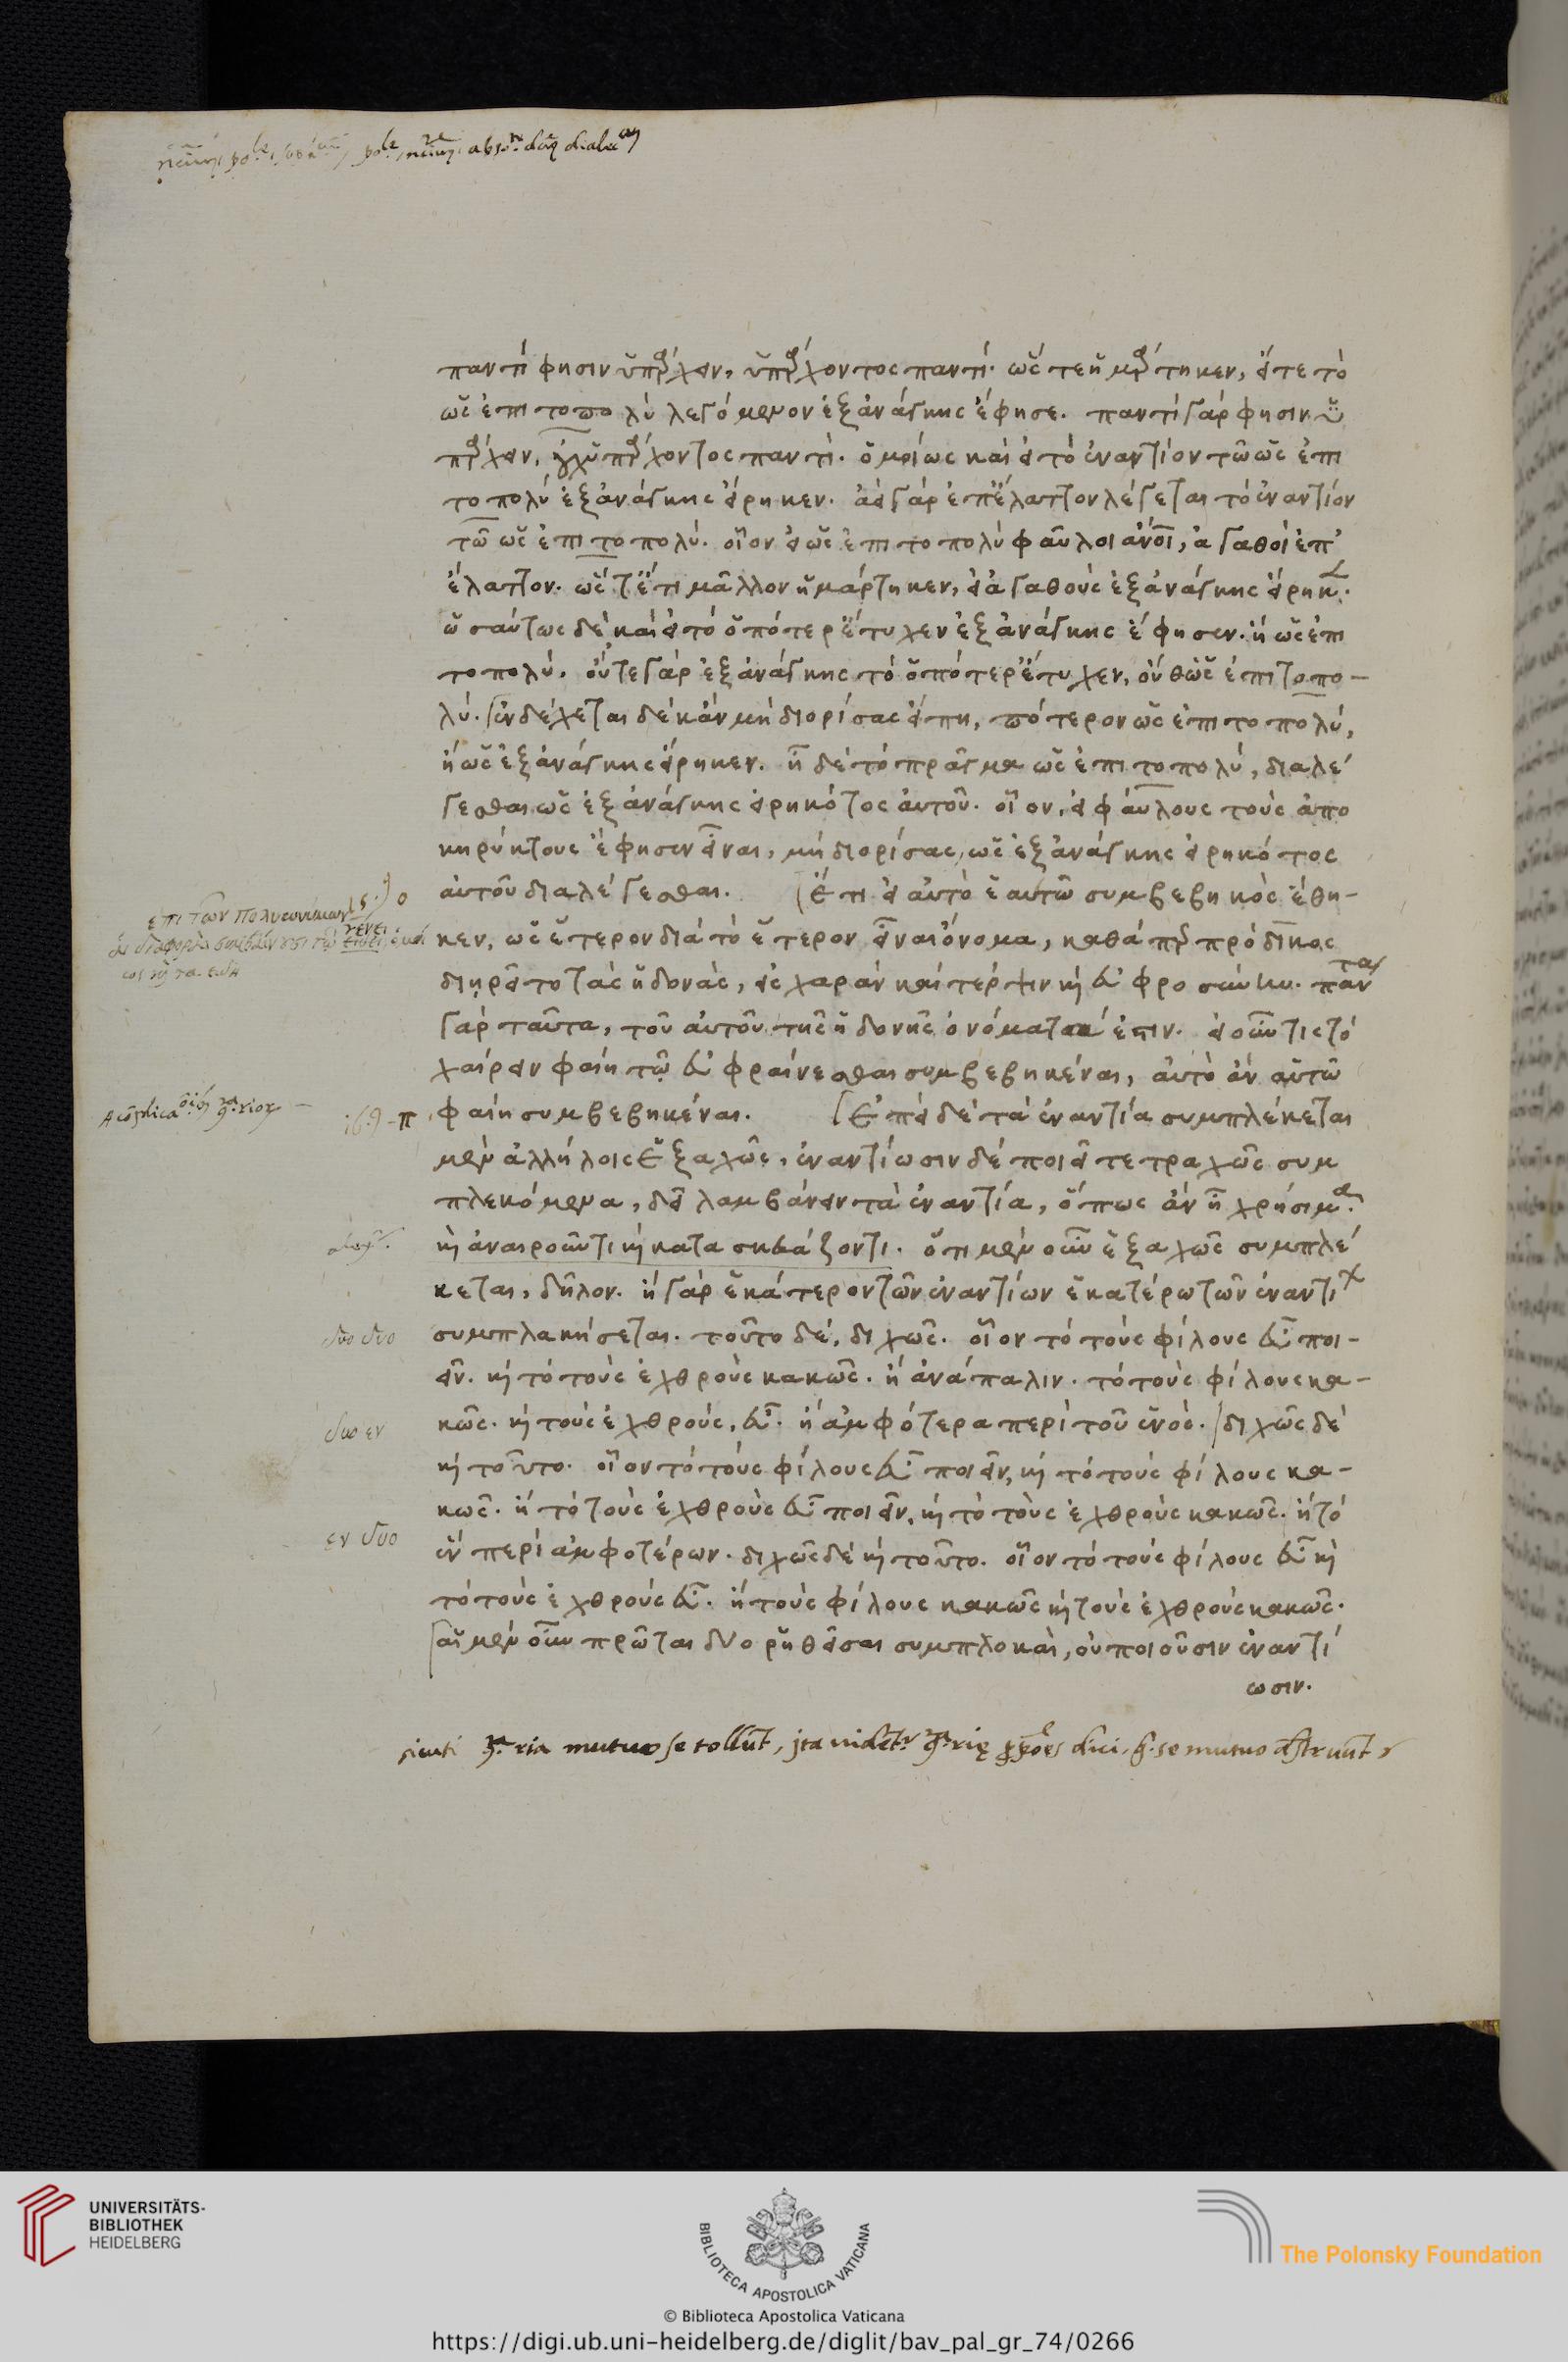 παντί φησιν ὑπάρχειν, ὑπάρχοντος παντί. ὥστε ἡμάρτηκεν, εἴτε τὸ
ὡς ἐπι τοπολὺ λεγόμενον ἐξανάγκης ἔφησε. παντὶ γάρ φησιν ὑ
πάρχειν, οὐχ ὑπάρχοντος παντί. ὁμοίως καὶ εἰ τὸ ἐναντίον τῶ ὡς ἐπι
τοπολὺ ἐξανάγκης εἴρηκεν. ἀεὶ γὰρ ἐπ' ἔλαττον λέγεται τὸ ἐναντίον
τῶ ὡς ἐπι τοπολύ. οἷον εἰ ὡς ἐπι τοπολὺ φαῦλοι ἄνοι, ἀγαθοὶ ἐπ'
ἔλαττον. ὥστ' ἔτι μᾶλλον ἡμάρτηκεν, εἰ ἀγαθοὺς ἐξανάγκης εἴρηκ.
ὡσαύτως δὲ καὶ εἰ τὸ ὁπότερ' ἔτυχεν ἐξανάγκης ἔφησεν. ἢ ὡς ἐπι
τοπολύ. οὔτε γὰρ ἐξανάγκης τὸ ὁπότερ' ἔτυχεν, οὔθ' ὡς ἐπι τοπο-
λύ. ἐνδέχεται δὲ κἂν μὴ διορίσας εἴπη, πότερον ὡς ἐπι τοπολύ,
ἢ ὡς ἐξανάγκης εἴρηκεν. ἦ δὲ τὸ πρᾶγμα ὡς ἐπι τοπολύ, διαλέ
γεσθαι ὡς ἐξανάγκης εἰρηκότος αὐτοῦ. οἷον, εἰ φαύλους τοὺς ἀπο
κηρύκτους ἔφησεν εἶναι, μὴ διορίσας, ὡς ἐξανάγκης εἰρηκότος
αὐτοῦ διαλέγεσθαι. Ἔτι εἰ αὐτὸ ἑαυτῶ συμβεβηκὸς ἔθη-
κεν, ὡς ἕτερον διὰ τὸ ἕτερον εἶναι ὄνομα, καθάπερ πρόδικος
διηρεῖτο τὰς ἡδονάς, εἰς χαρὰν καὶ τέρψιν κὶ εὐφροσύνην. πάντα
γὰρ ταῦτα, τοῦ αὐτοῦ τῆς ἡδονῆς ὀνόματα ἐστιν. εἰ οὖν τις τὸ
χαίρειν φαίη τῶ εὐφραίνεσθαι συμβεβηκέναι, αὐτὸ ἂν αὑτῶ
φαίη συμβεβηκέναι. Ἐπεὶ δὲ τὰ ἐναντία συμπλέκεται
μὲν ἀλλήλοις ἑξαχῶς, ἐναντίωσιν δὲ ποιεῖ τετραχῶς συμ
πλεκόμενα, δεῖ λαμβάνειν τὰ ἐναντία, ὅπως ἂν ἦ χρήσιμα.
κὶ ἀναιροῦντι κὶ κατασκευάζοντι. ὅτι μὲν οὖν ἑξαχῶς συμπλέ
κεται, δῆλον. ἢ γὰρ ἑκάτερον τῶν ἐναντίων ἑκατέρω τῶν ἐναντίων
συμπλακήσεται. τοῦτο δέ, διχῶς. οἷον τὸ τοὺς φίλους εὖ ποι-
εῖν. κὶ τὸ τοὺς ἐχθροὺς κακῶς. ἢ ἀνάπαλιν. τὸ τοὺς φίλους κα-
κῶς. κὶ τοὺς ἐχθροὺς, εὖ. ἢ ἀμφότερα περὶ τοῦ ἑνός. διχῶς δὲ
κὶ τοῦτο. οἷον τὸ τοὺς φίλους εὖ ποιεῖν, κὶ τὸ τοὺς φίλους κα-
κῶς. ἢ τὸ τοὺς ἐχθροὺς εὖ ποιεῖν, κὶ τὸ τοὺς ἐχθροὺς κακῶς. ἢ τὸ
ἓν περὶ ἀμφοτέρων. διχῶς δὲ κὶ τοῦτο. οἷον τὸ τοὺς φίλους εὖ κὶ
τὸ τοὺς ἐχθροὺς εὖ. ἢ τοὺς φίλους κακῶς κὶ τοὺς ἐχθροὺς κακῶς.
αἱ μὲν οὖν πρῶται δύο ῥηθεῖσαι συμπλοκαὶ, οὐ ποιοῦσιν ἐναντί
ωσιν.
επι των πολυωνύμων
δυο δυο
δυο εν
εν δυο
sicuti ria mutuo se tollūt, ita dici, se mutuo
UNIVERSITÄTS-
BIBLIOTHEK
HEIDELBERG
BIBLIOTECA APOSTOLICA VATICANA
© Biblioteca Apostolica Vaticana
The Polonsky Foundation
https://digi.ub.uni-heidelberg.de/diglit/bav_pal_gr_74/0266